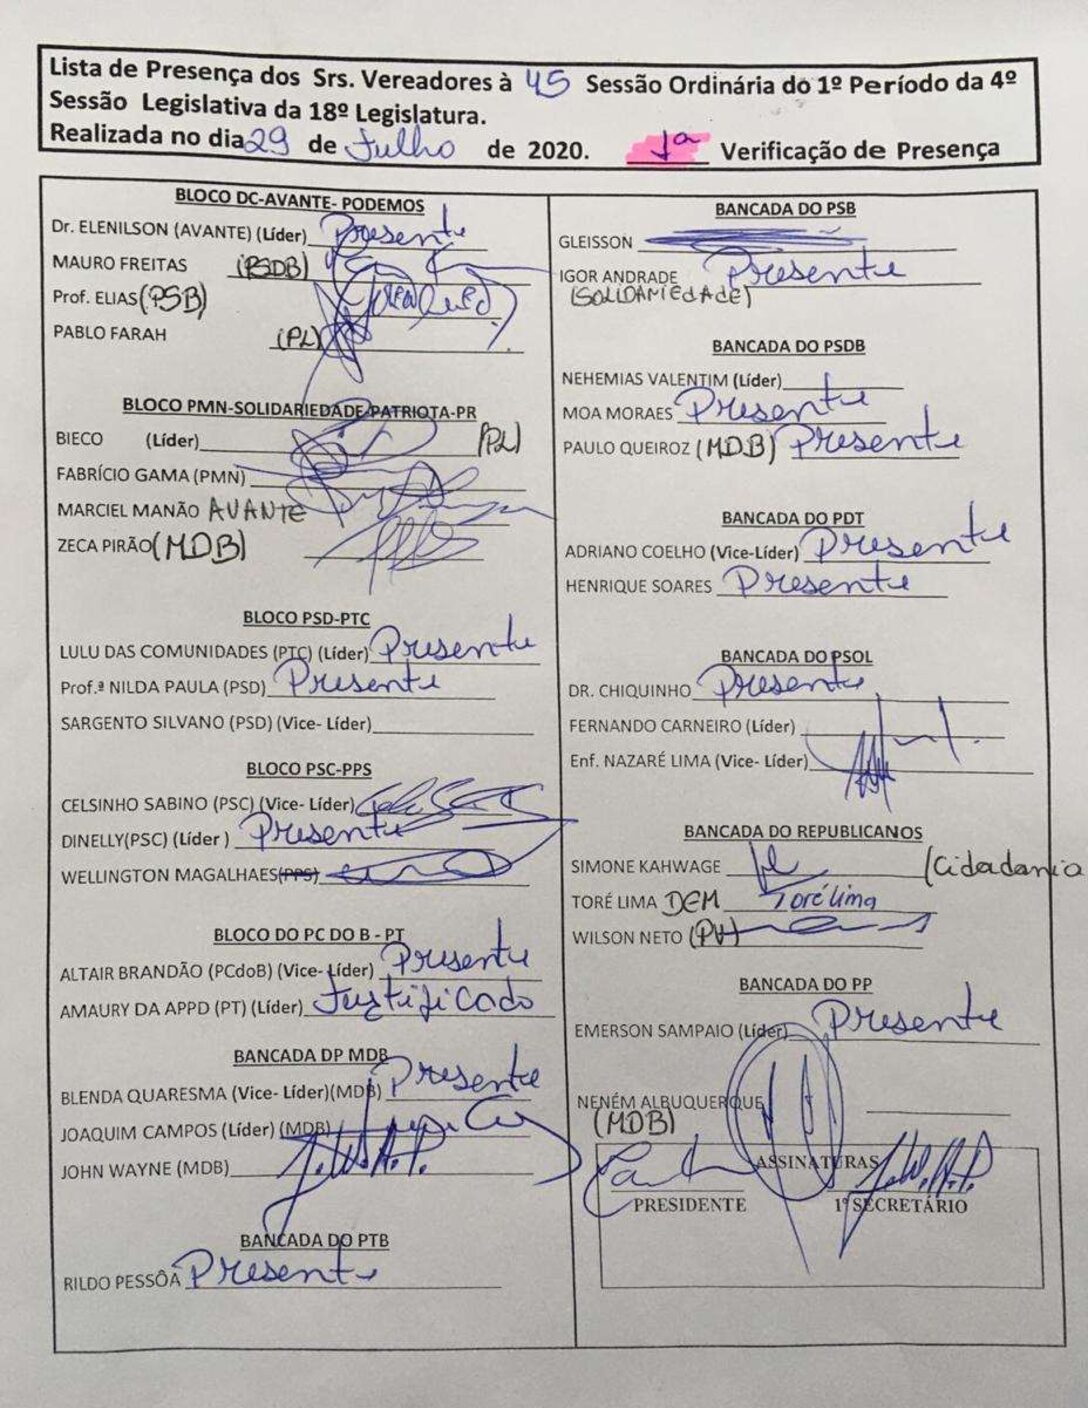 Lista de Presença dos Srs. Vereadores à 45 Sessão Ordinária do 1º Período da 4º
Sessão Legislativa da 18º Legislatura.
Realizada no dia 29 de Julho de 2020. 1ª Verificação de Presença
BLOCO DC-AVANTE- PODEMOS
Dr. ELENILSON (AVANTE) (Líder) Presente
MAURO FREITAS (PSDB)
Prof. ELIAS (PSB)
PABLO FARAH (PL)
BLOCO PMN-SOLIDARIEDADE-PATRIOTA-PR
BIECO (Líder) (PL)
FABRÍCIO GAMA (PMN)
MARCIEL MANÃO AVANTE
ZECA PIRÃO (MDB)
BLOCO PSD-PTC
LULU DAS COMUNIDADES (PTC) (Líder) Presente
Prof.ª NILDA PAULA (PSD) Presente
SARGENTO SILVANO (PSD) (Vice- Líder)
BLOCO PSC-PPS
CELSINHO SABINO (PSC) (Vice- Líder)
DINELLY(PSC) (Líder ) Presente
WELLINGTON MAGALHAES(PPS)
BLOCO DO PC DO B - PT
ALTAIR BRANDÃO (PCdoB) (Vice- Líder) Presente
AMAURY DA APPD (PT) (Líder) Justificado
BANCADA DP MDB
BLENDA QUARESMA (Vice- Líder)(MDB) Presente
JOAQUIM CAMPOS (Líder) (MDB)
JOHN WAYNE (MDB)
BANCADA DO PTB
RILDO PESSÔA Presente
BANCADA DO PSB
GLEISSON
IGOR ANDRADE Presente
(SOLIDARIEdAdE)
BANCADA DO PSDB
NEHEMIAS VALENTIM (Líder)
MOA MORAES Presente
PAULO QUEIROZ (MDB) Presente
BANCADA DO PDT
ADRIANO COELHO (Vice-Líder) Presente
HENRIQUE SOARES Presente
BANCADA DO PSOL
DR. CHIQUINHO Presente
FERNANDO CARNEIRO (Líder)
Enf. NAZARÉ LIMA (Vice- Líder)
BANCADA DO REPUBLICANOS
SIMONE KAHWAGE (Cidadania
TORÉ LIMA DEM Toré Lima
WILSON NETO (PV)
BANCADA DO PP
EMERSON SAMPAIO (Líder) Presente
NENÉM ALBUQUERQUE
(MDB)
ASSINATURAS
PRESIDENTE 1º SECRETÁRIO